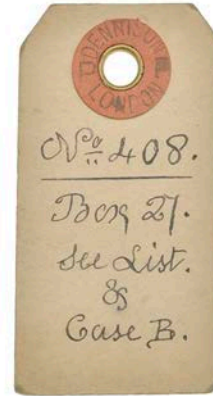 DENNISON
LONDON
No 408.
Box 27.
See List.
&
Case B.